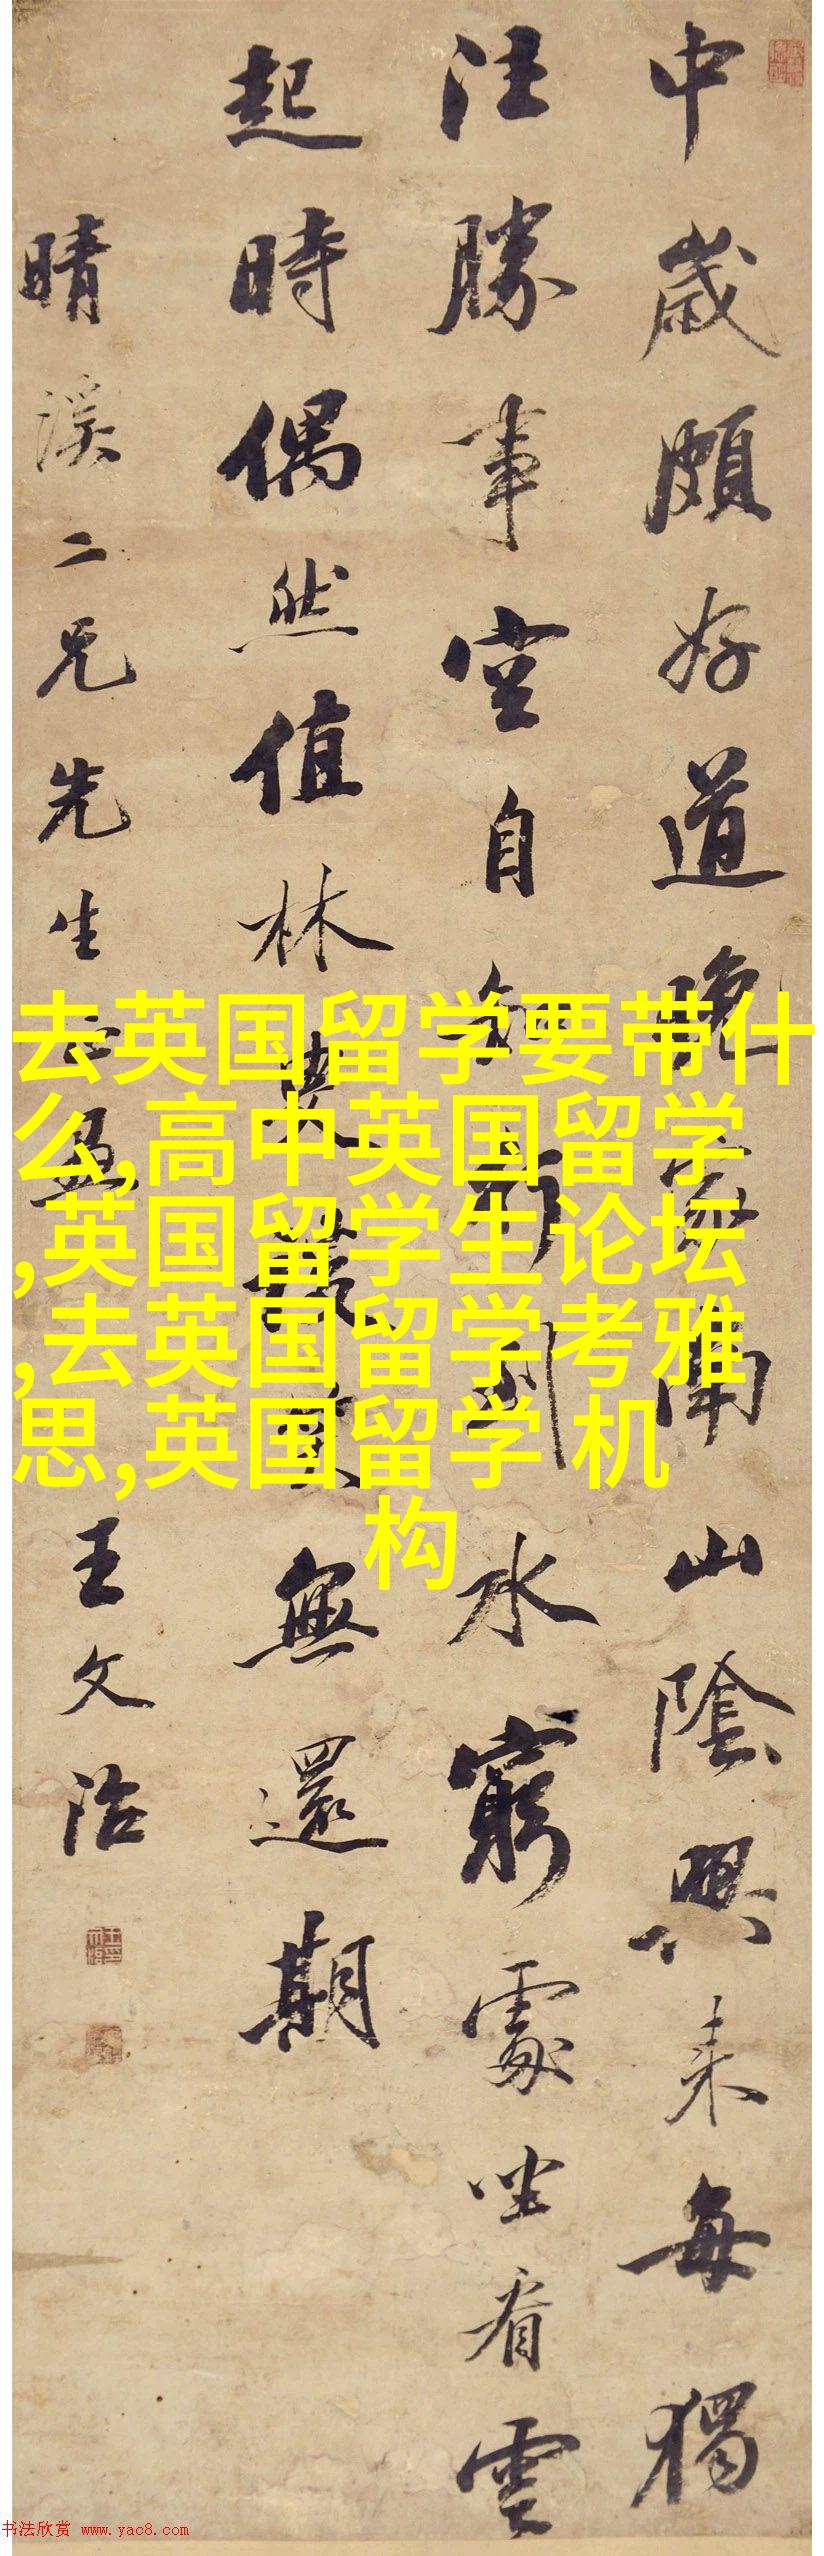 中歲頗好道晚家南山陰興来每獨
往勝事空自知行到水窮處坐看雲
起時偶然值林叟談笑無還期
晴溪二兄先生正
王文治
去英国留学要带什
么,高中英国留学
,英国留学生论坛
,去英国留学考雅
思,英国留学 机
构
书法欣赏 www.yac8.com